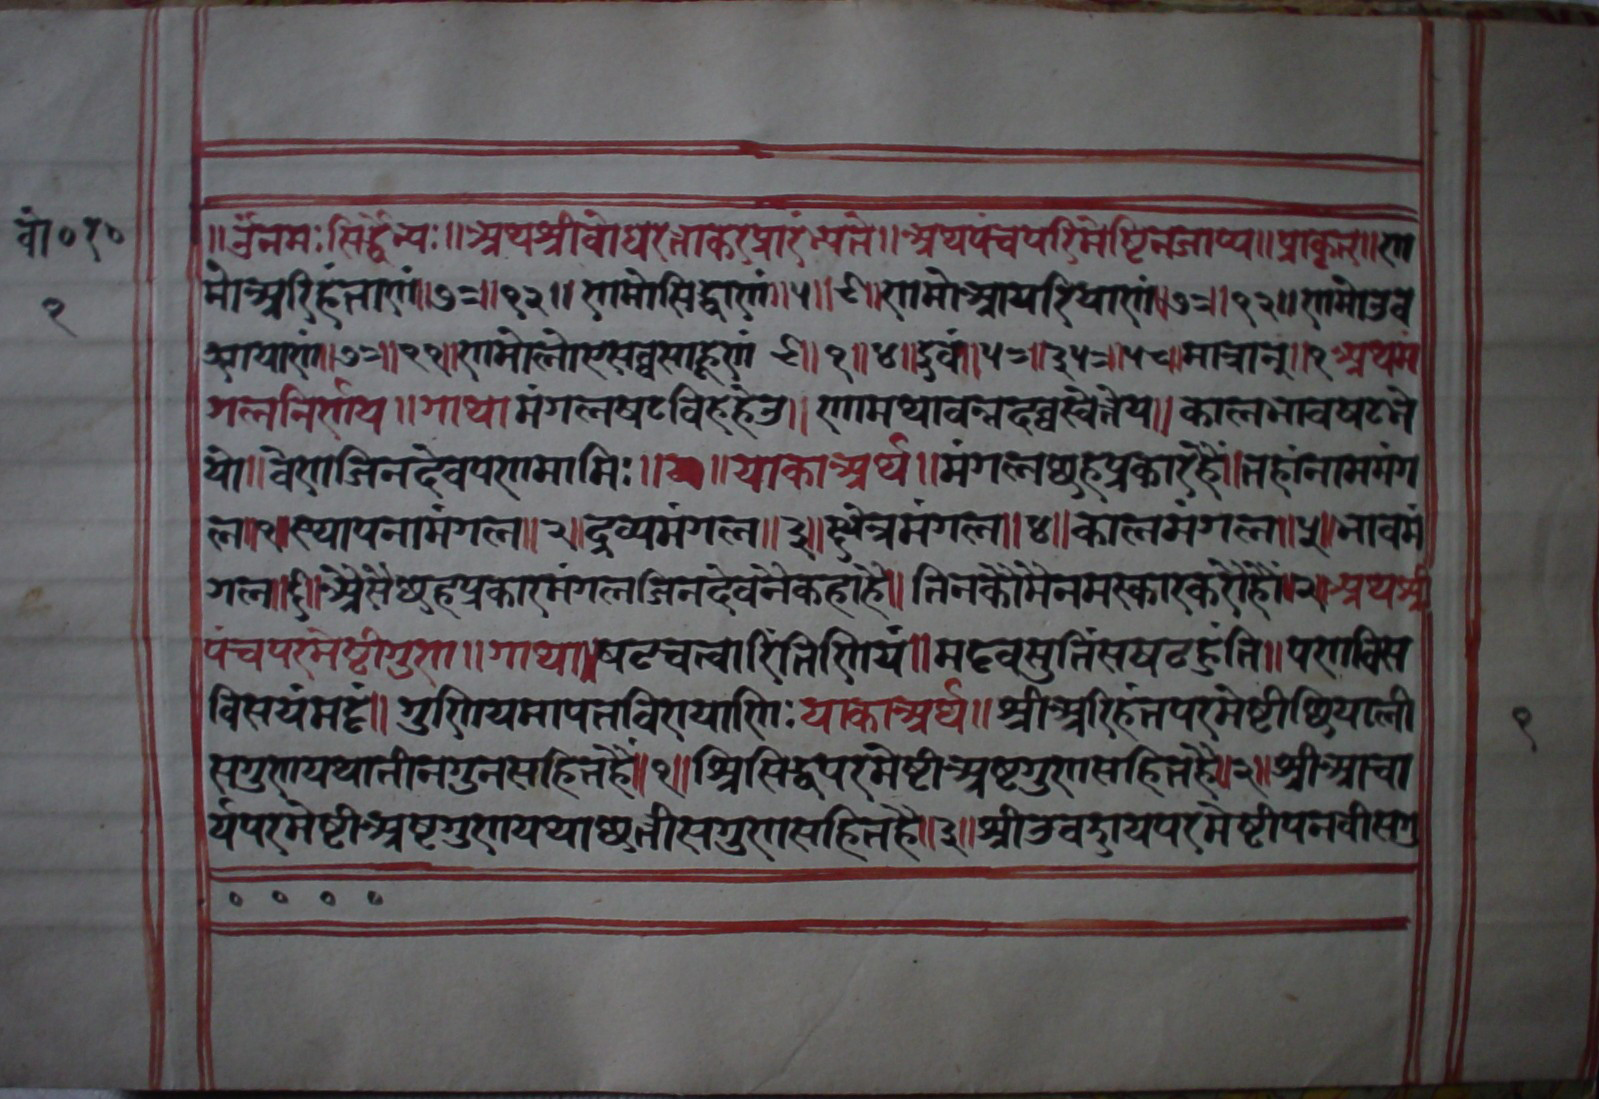 वो० र०
१
॥ ॐनमः सिद्धेभ्यः ॥ अथश्रीवोधरत्नाकरप्रारंभ्यते ॥ अथपंचपरिमेष्टिनजाप्य ॥ प्राकृत ॥ णा
मोअरिहंताणं ॥ ७= ॥ १२ ॥ णमोसिद्धाणं ॥ ५ ॥ ९ ॥ णमोआयरियाणं ॥ ७= ॥ १२ ॥ णमोउव
झायाणं ॥ ७= ॥ ११ ॥ णमोलोएसव्वसाहूणं ९ ॥ १ ॥ ४ ॥ ५= ॥ ३५= ॥ ५८ मात्रानु ॥ १ अथमं
गलनिर्णय ॥ गाथा मंगलषटविहहेउ ॥ णामथावनदव्वखेतेय ॥ कालभावषटभे
यो ॥ वेणजिनदेवपणमामिः ॥ याकाअर्थ ॥ मंगलछहप्रकारहैं ॥ तहांनाममंग
ल ॥ १ ॥ स्थापनामंगल ॥ २ ॥ द्रव्यमंगल ॥ ३ ॥ क्षेत्रमंगल ॥ ४ ॥ कालमंगल ॥ ५ ॥ भावमं
गल ॥ ६ ॥ अैसेछहप्रकारमंगलजिनदेवनेकहाहै ॥ तिनकौमैनमस्कारकरौहौं ॥ २ ॥ अथश्री
पंचपरमेष्टीगुण ॥ गाथा ॥ षटचत्वारिंतिणियं ॥ मट्टवसुतिंसषटहुंति ॥ पणविस
विसयंमट्ठं ॥ गुणियमापतविरायाणिः याकाअर्थ ॥ श्रीअरिहंतपरमेष्टीछियाली
सगुणयथातीनगुनसहितहैं ॥ १ ॥ श्रिसिद्धपरमेष्टीअष्टगुणसहितहै ॥ २ ॥ श्रीआचा
र्यपरमेष्टीअष्टगुणयथाछतीसगुणसहितहै ॥ ३ ॥ श्रीउवद्वायपरमेष्टीपनवीसगु
० ० ० ०
१